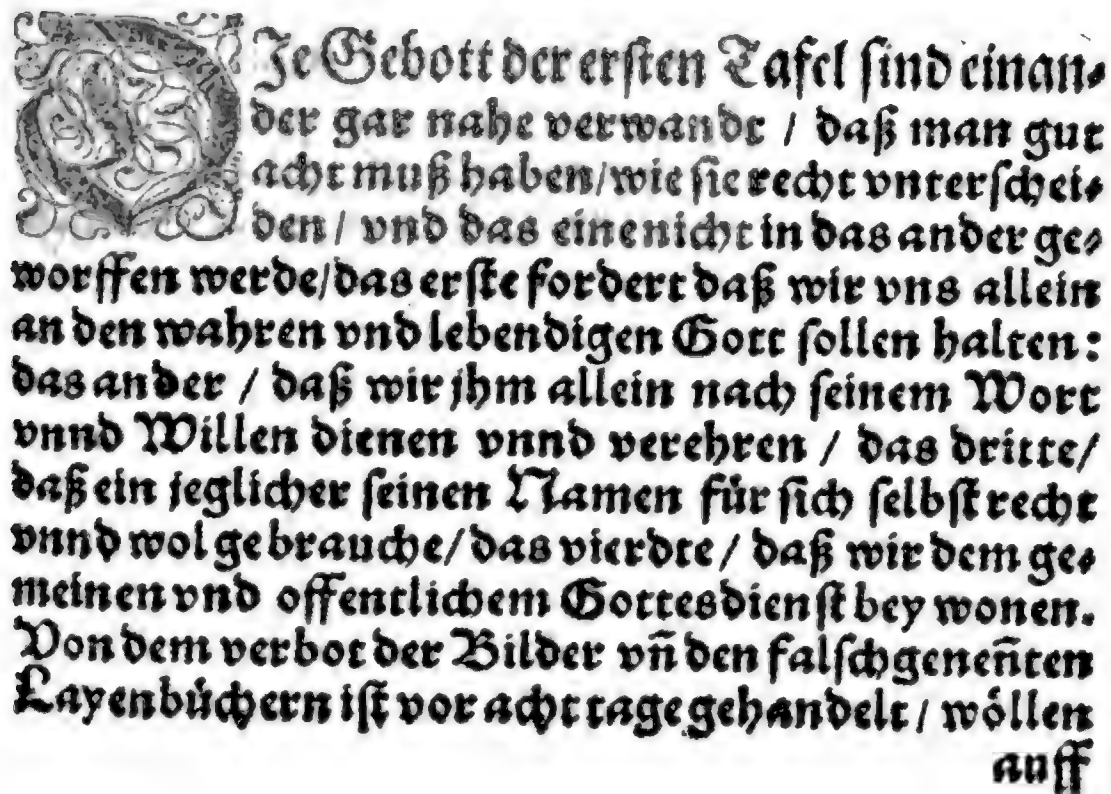 DJe Gebott der ersten Tafel sind einan⸗
der gar nahe verwandt / daß man gut
acht muß haben/wie sie recht vnterschei⸗
den / vnd das eine nicht in das ander ge⸗
worffen werde/das erste fordert daß wir vns allein
an den wahren vnd lebendigen Gott sollen halten:
das ander / daß wir jhm allein nach seinem Wort
vnnd Willen dienen vnnd verehren / das dritte/
daß ein jeglicher seinen Namen für sich selbst recht
vnnd wol gebrauche/das vierdte / daß wir dem ge⸗
meinen vnd offentlichem Gottesdienst bey wonen.
Von dem verbot der Bilder vñ den falschgeneñten
Layenbüchern ist vor acht tage gehandelt / wöllen
auff